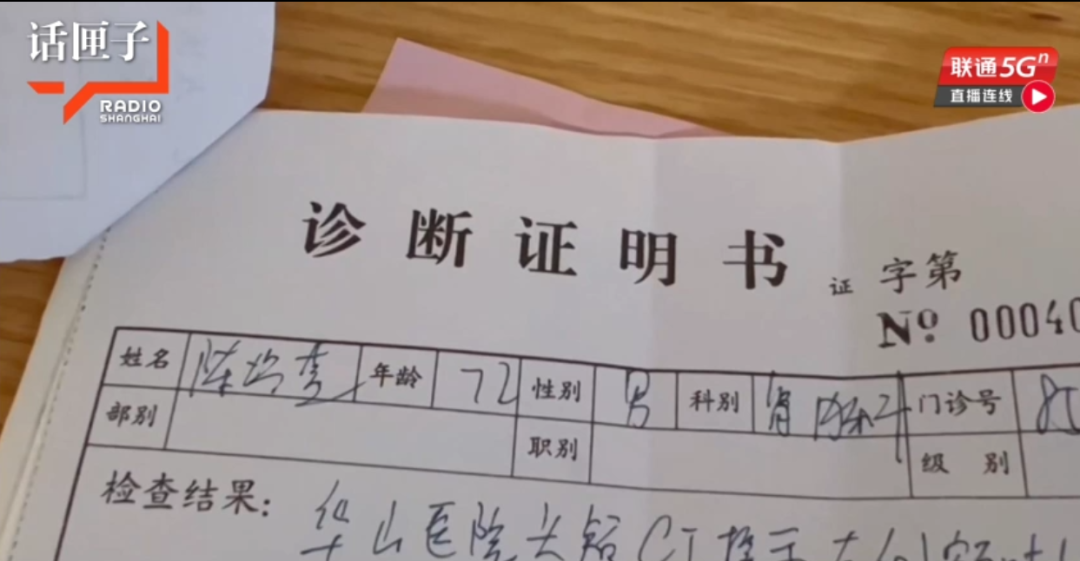 话匣子
RADIO
SHANGHAI
联通5Gⁿ
直播连线
诊断证明书
证字第
Nº 00040
姓名 年龄 72 性别 男 科别 肾内科 门诊号
部别 职别 级别
检查结果: 华山医院头颅CT提示